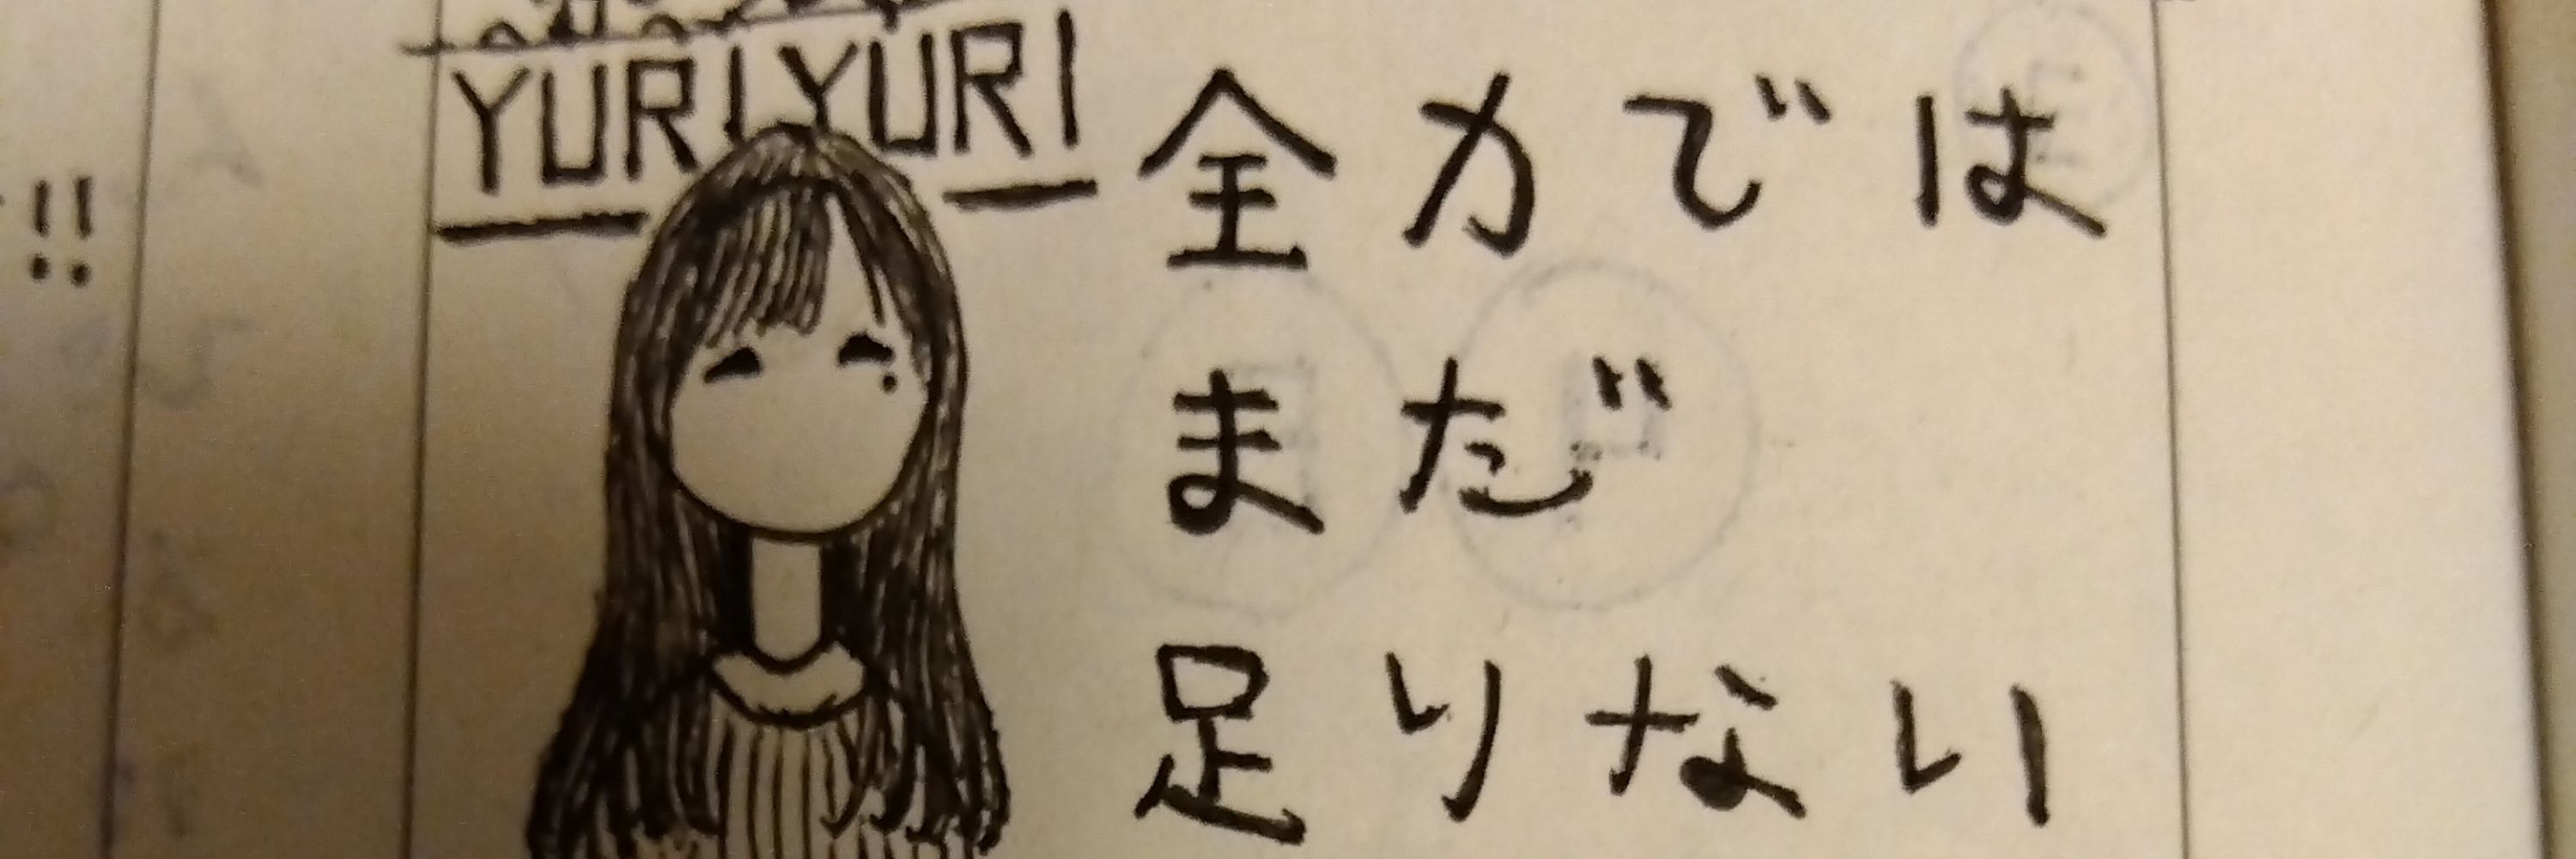 !!
YURIYURI
全力では
まだ
足りない